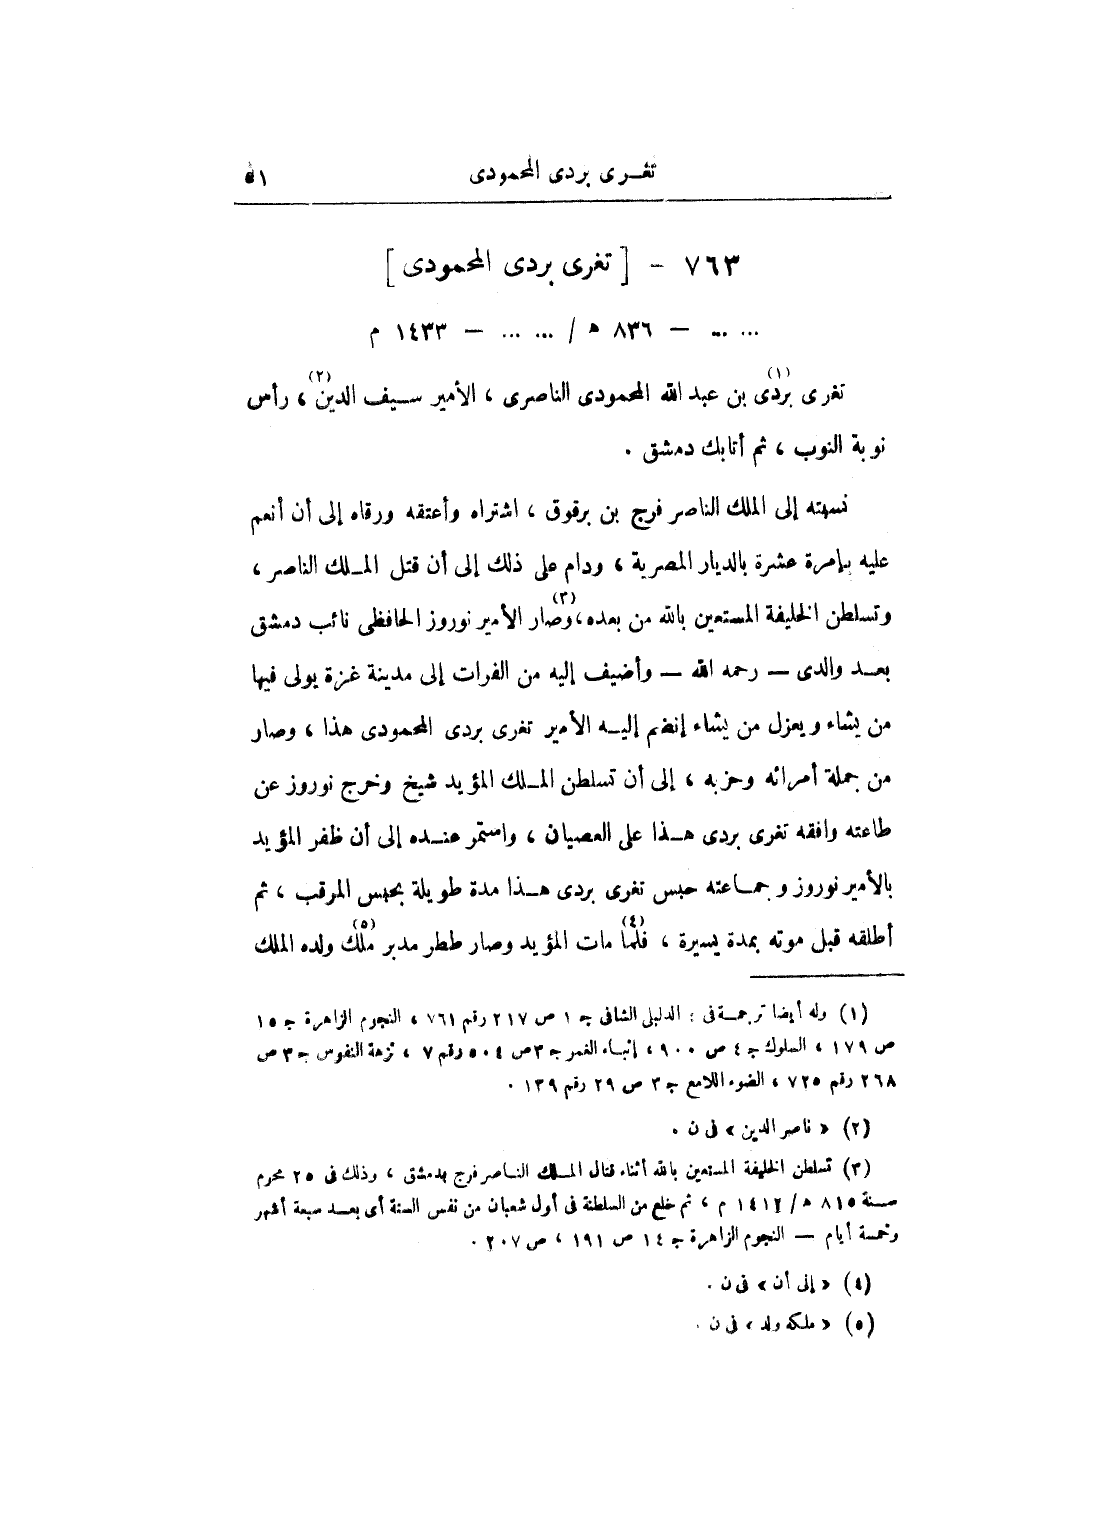 تغرى بردى المحمودى ٥١
٧٦٣ - [ تغرى بردى المحمودى ]
... ... — ٨٣٦ ه / ... ... — ١٤٣٣ م
تغرى بردى (١) بن عبد الله المحمودى الناصرى ، الأمير سيف الدين (٢) ، رأس
نوبة النوب ، ثم أتابك دمشق .
نسبته إلى الملك الناصر فرج بن برقوق ، اشتراه وأعتقه ورقاه إلى أن أنعم
عليه بإمرة عشرة بالديار المصرية ، ودام على ذلك إلى أن قتل الملك الناصر ،
وتسلطن الخليفة المستعين بالله من بعده (٣) ، وصار الأمير نوروز الحافظى نائب دمشق
بعد والدى — رحمه الله — وأضيف إليه من الفرات إلى مدينة غزة يولى فيها
من يشاء ويعزل من يشاء إنضم إليه الأمير تغرى بردى المحمودى هذا ، وصار
من جملة أمرائه وحزبه ، إلى أن تسلطن الملك المؤيد شيخ وخرج نوروز عن
طاعته وافقه تغرى بردى هذا على العصيان ، واستمر عنده إلى أن ظفر المؤيد
بالأمير نوروز وجماعته حبس تغرى بردى هذا مدة طويلة بحبس المرقب ، ثم
أطلقه قبل موته بمدة يسيرة ، فلما (٤) مات المؤيد وصار ططر مدبر ملك (٥) ولده الملك
(١) وله أيضا ترجمة فى : الدليل الشافى ج ١ ص ٢١٧ رقم ٧٦١ ، النجوم الزاهرة ج ١٥
ص ١٧٩ ، السلوك ج ٤ ص ٩٠٠ ، إنباء الغمر ج ٣ ص ٥٠٤ رقم ٧ ، نزهة النفوس ج ٣ ص
٢٦٨ رقم ٧٢٥ ، الضوء اللامع ج ٣ ص ٢٩ رقم ١٣٩ .
(٢) « ناصر الدين » فى ن .
(٣) تسلطن الخليفة المستعين بالله أثناء قتال الملك الناصر فرج بدمشق ، وذلك فى ٢٥ محرم
سنة ٨١٥ ه / ١٤١٢ م ، ثم خلع من السلطنة فى أول شعبان من نفس السنة أى بعد سبعة أشهر
وخمسة أيام — النجوم الزاهرة ج ١٤ ص ١٩١ ، ص ٢٠٧ .
(٤) « إلى أن » فى ن .
(٥) « ملكه ولد » فى ن .